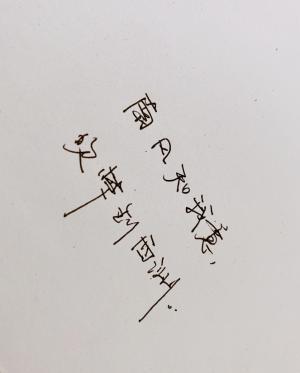 南风知我意，
吹梦到西洲.